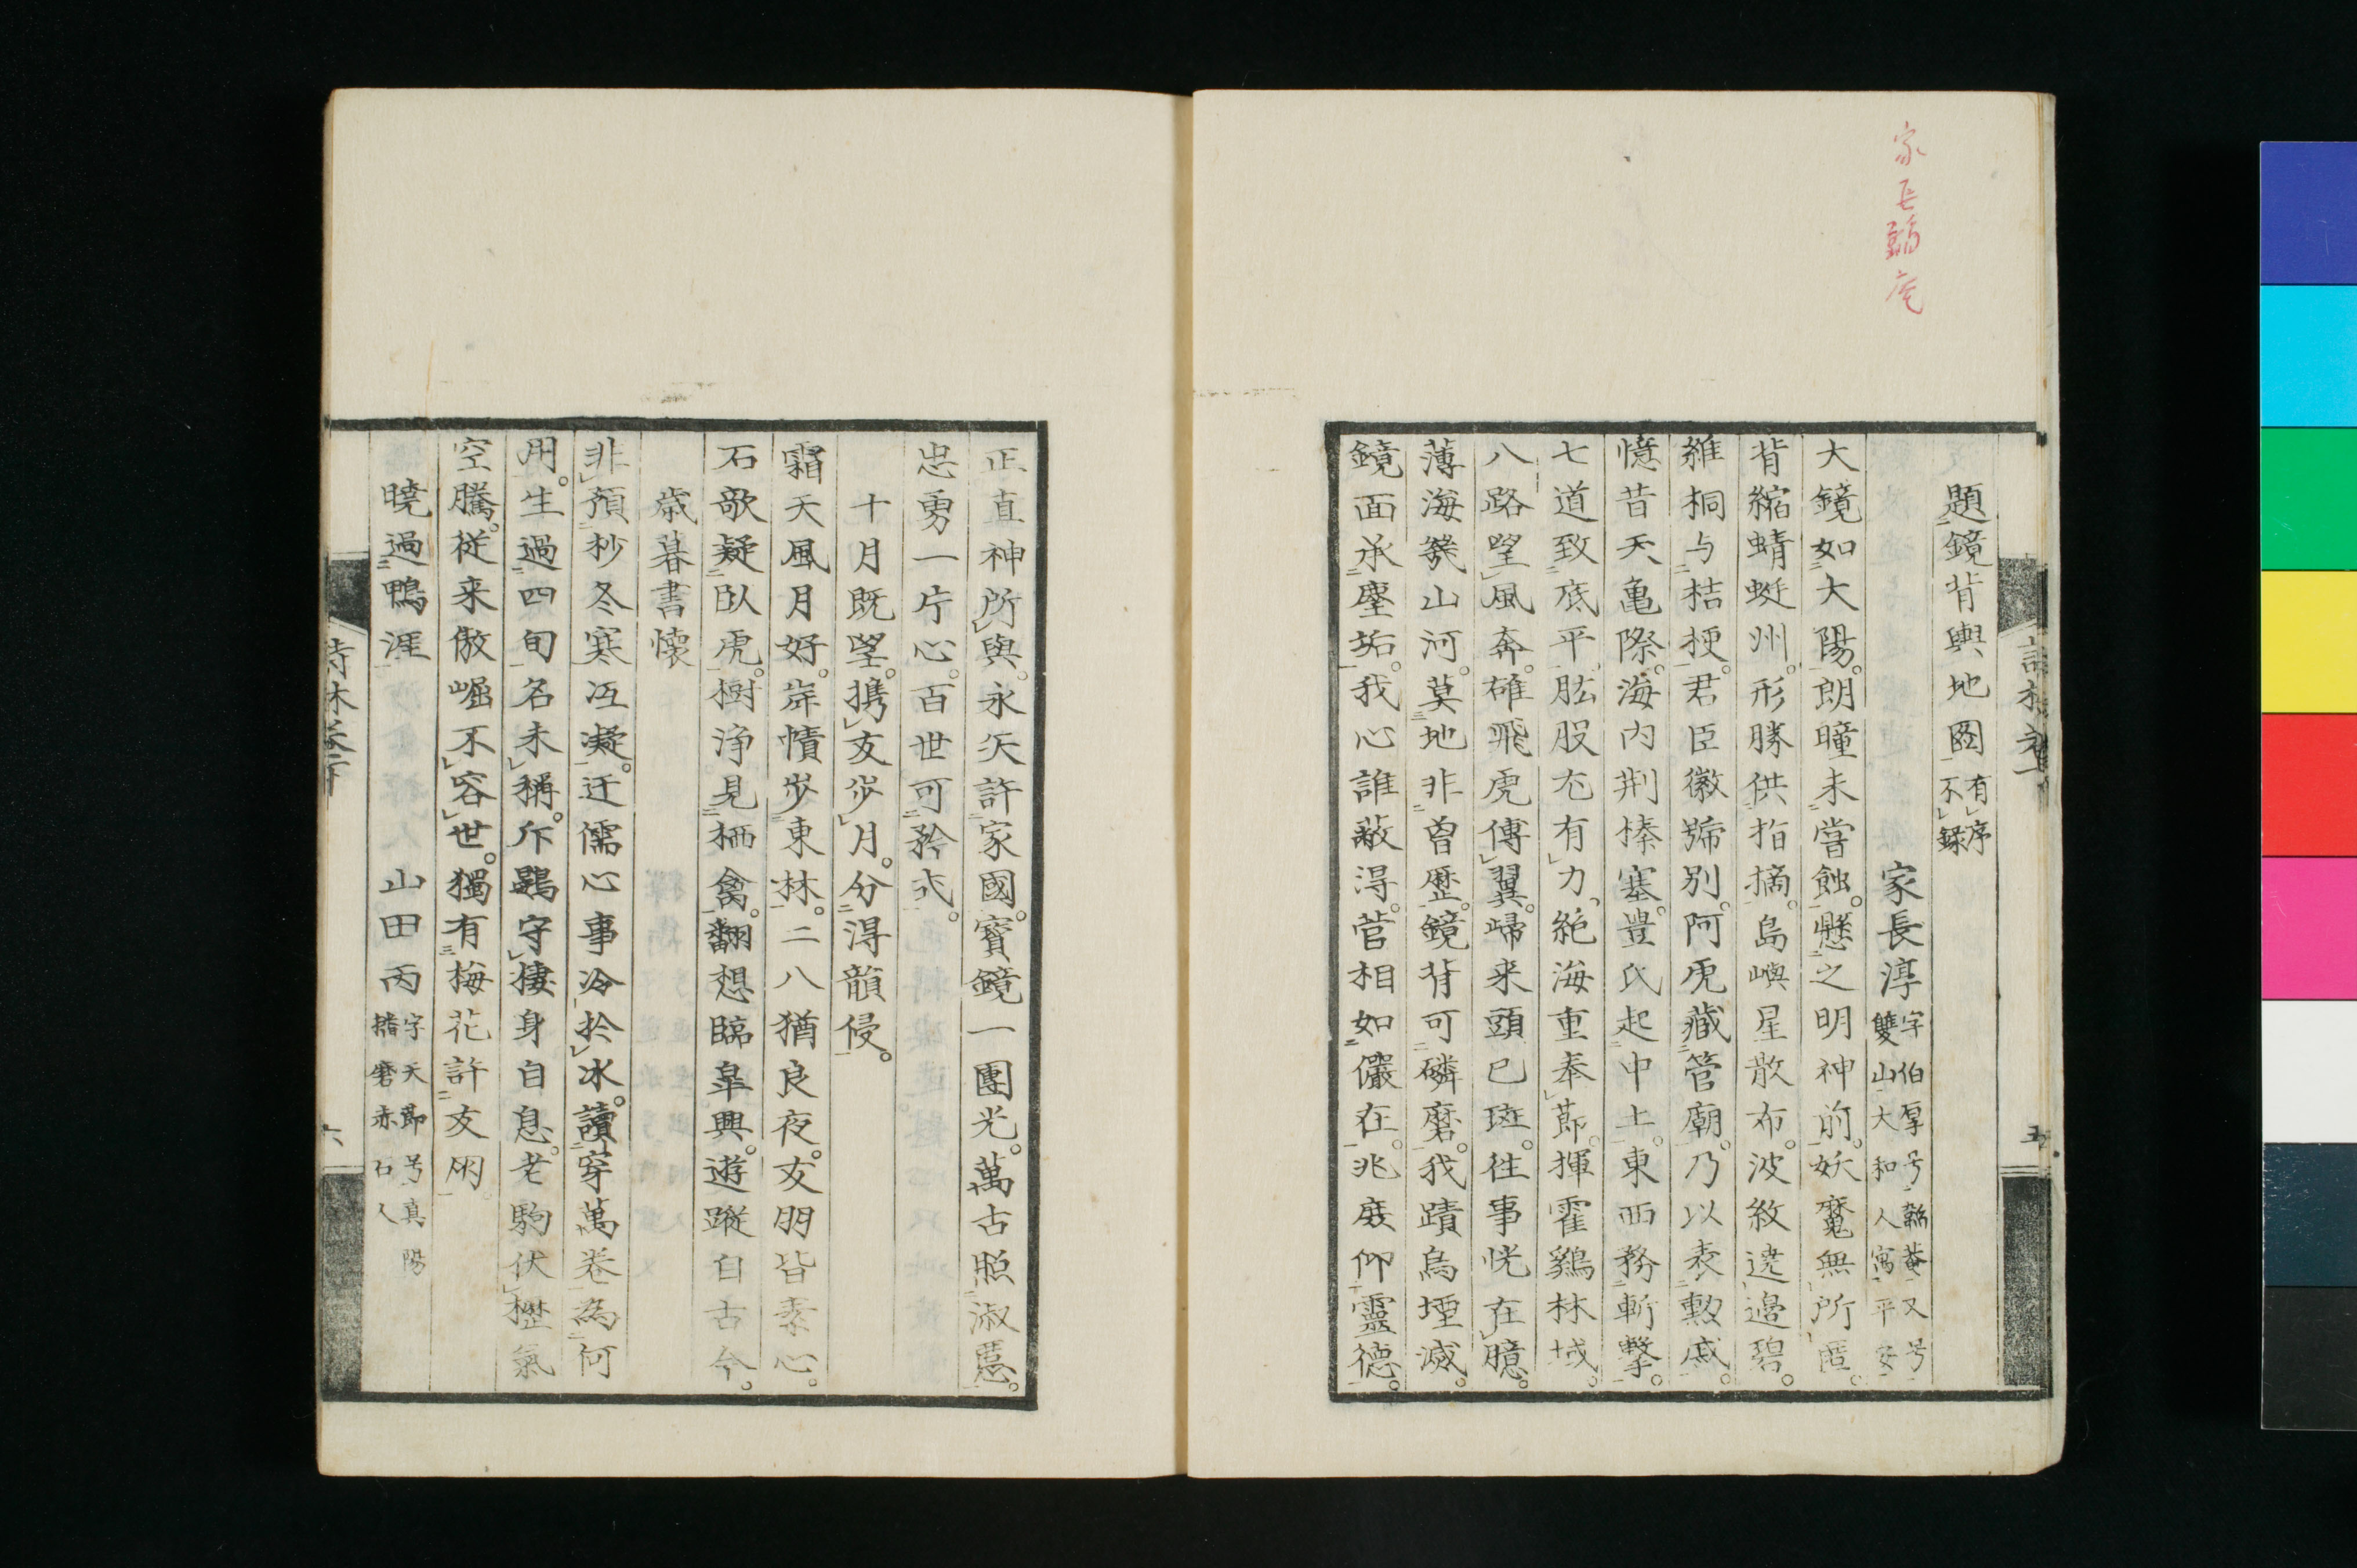 家長韜庵
題鏡背輿地圖 有序不録
家長淳 字伯厚号韜菴又号雙山大和人寓平安
大鏡如大陽。朗曈未嘗蝕。懸之明神前。妖魔無所匿。
背縮蜻蜓州。形勝供指摘。島嶼星散布。波紋遶邉碧。
維桐与桔梗。君臣徽號別。阿虎藏管廟。乃以表勲戚。
憶昔天亀際。海内荆榛塞。豊氏起中土。東西務斬擊。
七道致底平、肱股尤有力、絶海重奉莭。揮霍鷄林域。
八路望風奔。碓飛虎傳翼。歸来頭已斑。徃事恍在臆。
薄海幾山河。莫地非曽歴。鏡背可磷磨。我蹟烏堙滅。
鏡面承塵垢。我心誰蔽得。菅相如儼在。兆庶仰靈德。
五
正直神所與。永矢許家國。寳鏡一團光。萬古照淑慝。
忠勇一片心。百世可矜式。
十月既望。携友歩月。分得韻侵。
霜天風月好。岸幘歩東林。二八猶良夜。友朋皆素心。
石欹疑臥虎。樹浄見栖禽。翻想臨皐興。遊蹤自古今。
歳暮書懷
非預杪冬寒沍凝。迂儒心事冷於氷。讀穿萬卷為何
用。生過四旬名未稱。斥鷃守棲身自息。老駒伏櫪氣
空騰。従来傲崛不容世。獨有梅花許友朋。
曉過鴨涯 山田丙 字天莭号真陽揩磨赤石人
詩林巻二
六